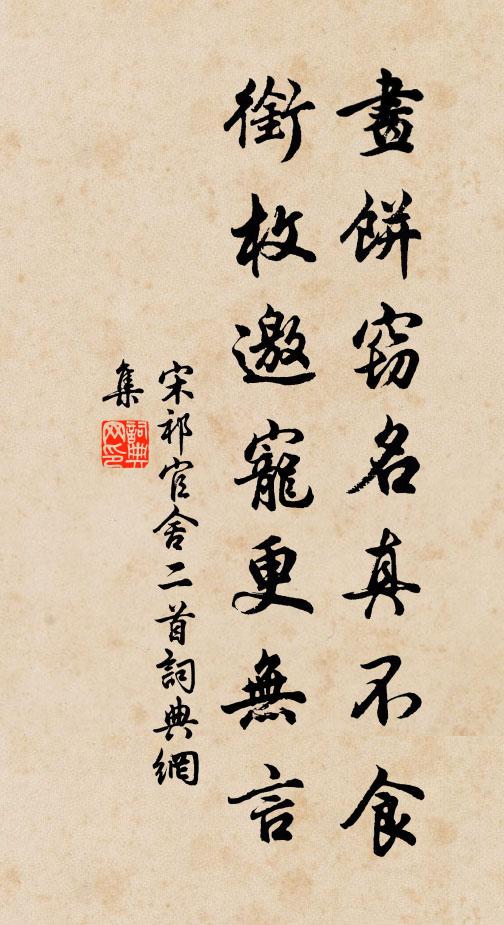 畫餅窃名真不食
銜枚邀寵更無言
宋祁官舍二首詞典網
集
詞典
网印